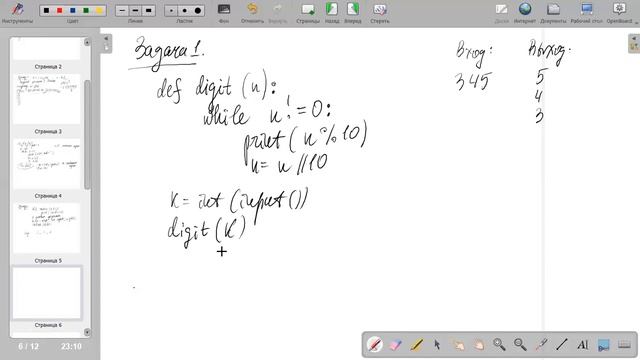 Инструменты
Цвет
Линия
Ластик
Фон
Отменить
Страницы
Назад
Вперед
Стереть
Доска
Интернет
Документы
Рабочий стол
OpenBoard
Страница 2
Страница 3
Страница 4
Страница 5
Страница 6
6 / 12
23:10
Задача 1.
def digit (n):
while n != 0:
print( n % 10)
n = n // 10
k = int (input ())
digit (k)
Вход:
345
Выход:
5
4
3